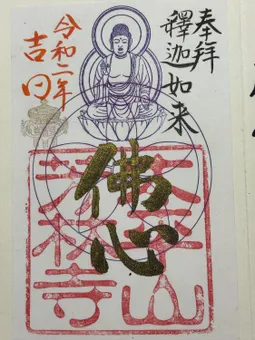 奉拝
釋迦如来
佛心
令和二年
吉日
平山
林寺